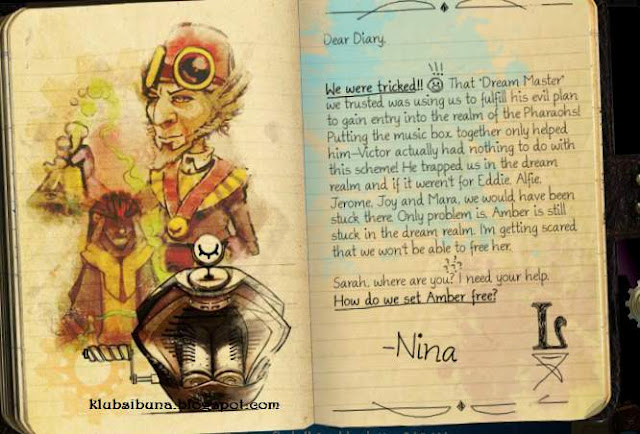 Dear Diary,
!!!
We were tricked!! That "Dream Master"
we trusted was using us to fulfill his evil plan
to gain entry into the realm of the Pharaohs!
Putting the music box together only helped
him—Victor actually had nothing to do with
this scheme! He trapped us in the dream
realm and if it weren't for Eddie, Alfie,
Jerome, Joy and Mara, we would have been
stuck there. Only problem is, Amber is still
stuck in the dream realm. I'm getting scared
that we won't be able to free her.
???
Sarah, where are you? I need your help.
How do we set Amber free?
-Nina
klubsibuna.blogspot.com